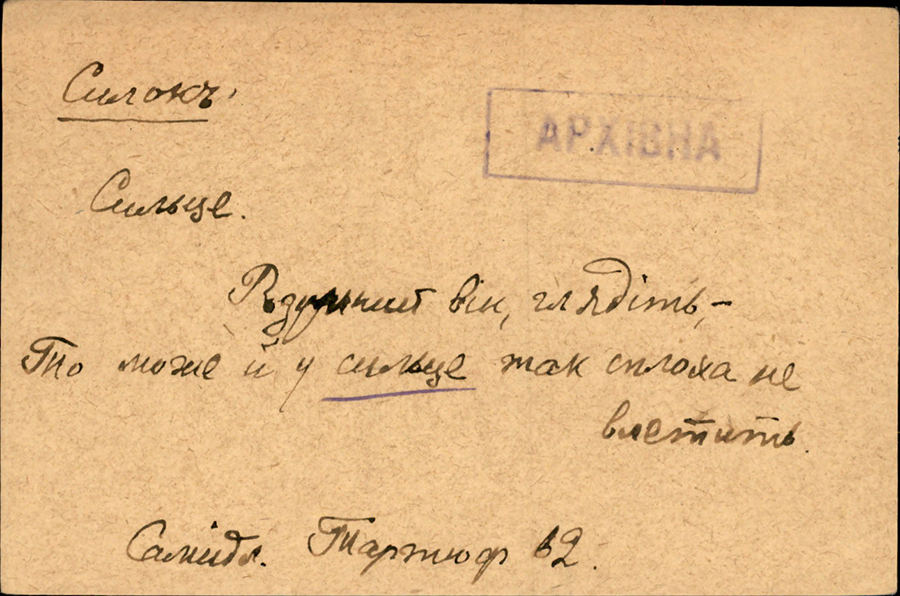 Силокъ
АРХІВНА
Сильце.
він, глядіть, –
То може й у сильце так сплоха не
влетить.
Самійл. Тартюф 62.